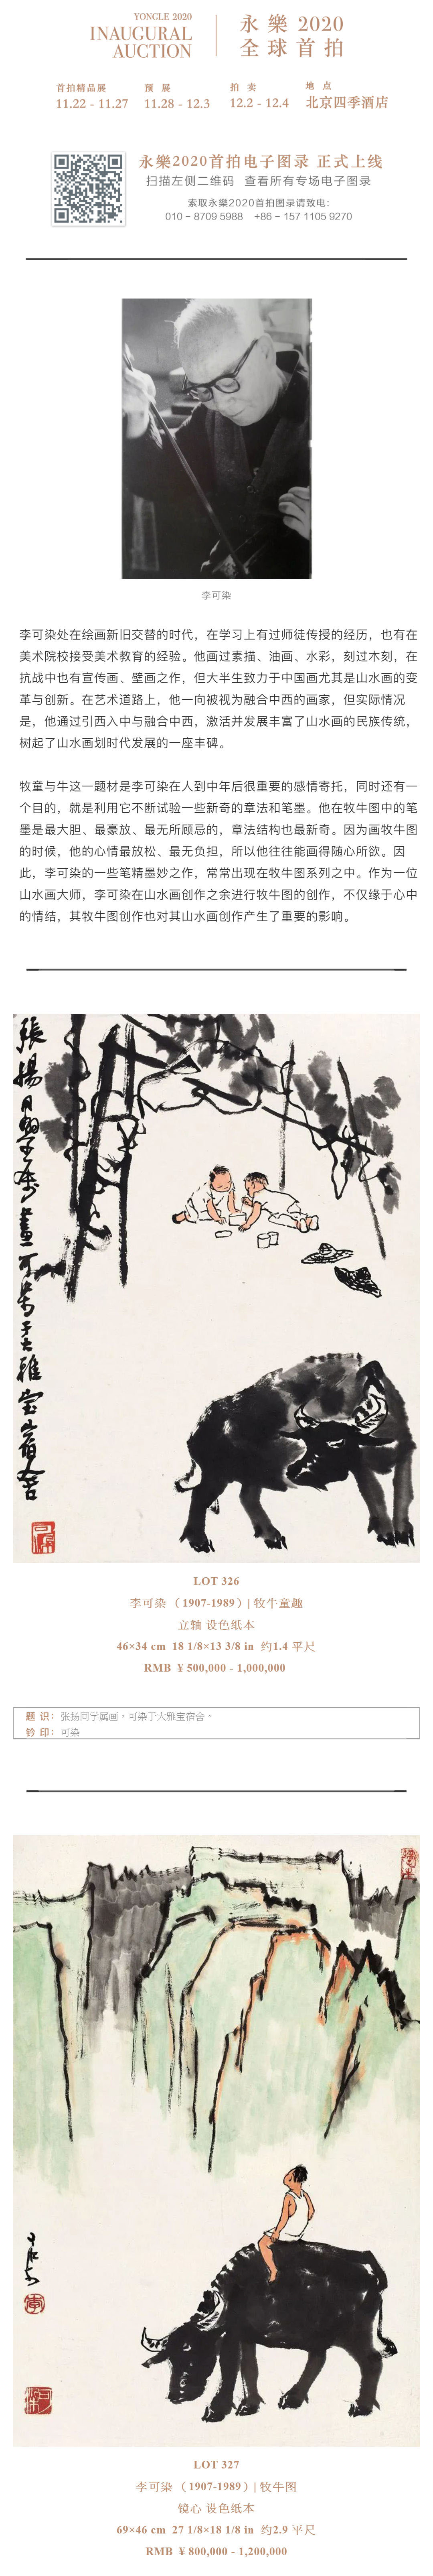 YONGLE 2020
INAUGURAL
AUCTION
永樂 2020
全球首拍
首拍精品展
11.22 - 11.27
预 展
11.28 - 12.3
拍 卖
12.2 - 12.4
地 点
北京四季酒店
永樂2020首拍电子图录 正式上线
扫描左侧二维码 查看所有专场电子图录
索取永樂2020首拍图录请致电:
010 - 8709 5988 +86 - 157 1105 9270
李可染
李可染处在绘画新旧交替的时代，在学习上有过师徒传授的经历，也有在
美术院校接受美术教育的经验。他画过素描、油画、水彩，刻过木刻，在
抗战中也有宣传画、壁画之作，但大半生致力于中国画尤其是山水画的变
革与创新。在艺术道路上，他一向被视为融合中西的画家，但实际情况
是，他通过引西入中与融合中西，激活并发展丰富了山水画的民族传统，
树起了山水画划时代发展的一座丰碑。
牧童与牛这一题材是李可染在人到中年后很重要的感情寄托，同时还有一
个目的，就是利用它不断试验一些新奇的章法和笔墨。他在牧牛图中的笔
墨是最大胆、最豪放、最无所顾忌的，章法结构也最新奇。因为画牧牛图
的时候，他的心情最放松、最无负担，所以他往往能画得随心所欲。因
此，李可染的一些笔精墨妙之作，常常出现在牧牛图系列之中。作为一位
山水画大师，李可染在山水画创作之余进行牧牛图的创作，不仅缘于心中
的情结，其牧牛图创作也对其山水画创作产生了重要的影响。
張揚同學属畫可染于大雅宝宿舍
可染
LOT 326
李可染 （1907-1989）| 牧牛童趣
立轴 设色纸本
46×34 cm 18 1/8×13 3/8 in 约1.4 平尺
RMB ¥ 500,000 - 1,000,000
题 识：张扬同学属画，可染于大雅宝宿舍。
钤 印：可染
可染
李
LOT 327
李可染 （1907-1989）| 牧牛图
镜心 设色纸本
69×46 cm 27 1/8×18 1/8 in 约2.9 平尺
RMB ¥ 800,000 - 1,200,000